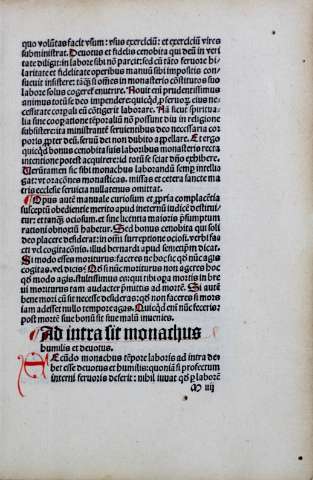 quo volūtas facit vsum: vsus exercitiū: et exercitiū vires
subministrat. Deuotus et fidelis cenobita qui deū in veri
tate diligit: in labore sibi nō parcit: sed cū tāto feruore hi
laritate et fidelitate operibus manuū sibi impositis con
sueuit insistere: tāq̄ si officīs in monasterio cōstitutus suo
labore solus cogeret̄ enutrire. Nouit em̄ prudentissimus
animus totū se deo impendere: quicq̄d pꝰ seruoꝝ eius ne
cessitate corpali eū cōtigerit laborare. Nā licet spiritua
lia sine coopatione tēporaliū nō possunt diu in religione
subsistere: ita ministrantē seruientibus deo necessaria cor
poris ꝓpter deū. seruū dei non dubito appellare. Et ergo
quicqd bonus cenobita suis laboribus monasterio recta
intentione potest acquirere: id totū se sciat dn̄o exhibere.
Verūtamen sic sibi monachus laborandū semp̄ intelli
gat: vt oracōnes monasticas. missas et cetera sancte ma
tris ecclesie seruicia nullatenus omittat.
Opus autē manuale curiosum et ꝓpria complacētia
susceptū obedientie merito apud inetrenū iudicē destitui
tur: et tranq̄ ociosum. et sine licentia maioris p̄sumptum
rationi obnoxiū habetur. Sed bonus cenobita qui soli
deo placere desiderat: in om̄i surreptione ocioſi. verbi ſas
est vel cogitacōnis. illud bernardi apud semetip̄m dicat.
Si modo esses moriturus: faceres ne hoc sic qd̄ nūc agis
cogitas. vel dicis? Qd̄ si nūc moriturus non ageres hoc
qd̄ modo agis. stultissimus es: qui tibi opa mortis in bre
ui moriturus tam audacter p̄mittis ad mortē. Si autē
bene mori cū sit necesse desideras: qd̄ non faceres si mors
iam adesset nullo tempore agas. Quicqd em̄ nūc feceris:
post mortē siue bonū sit siue malū inuenies.
Ad intra sit monachus
humilis et deuotus.
Secūdo monachus tēpore laboris ad intra de
bet esse deuotus et humilis: quoniā si profectum
interni feruoris deserit: nihil iuuat qd̄ p̱ laborē
M iiij